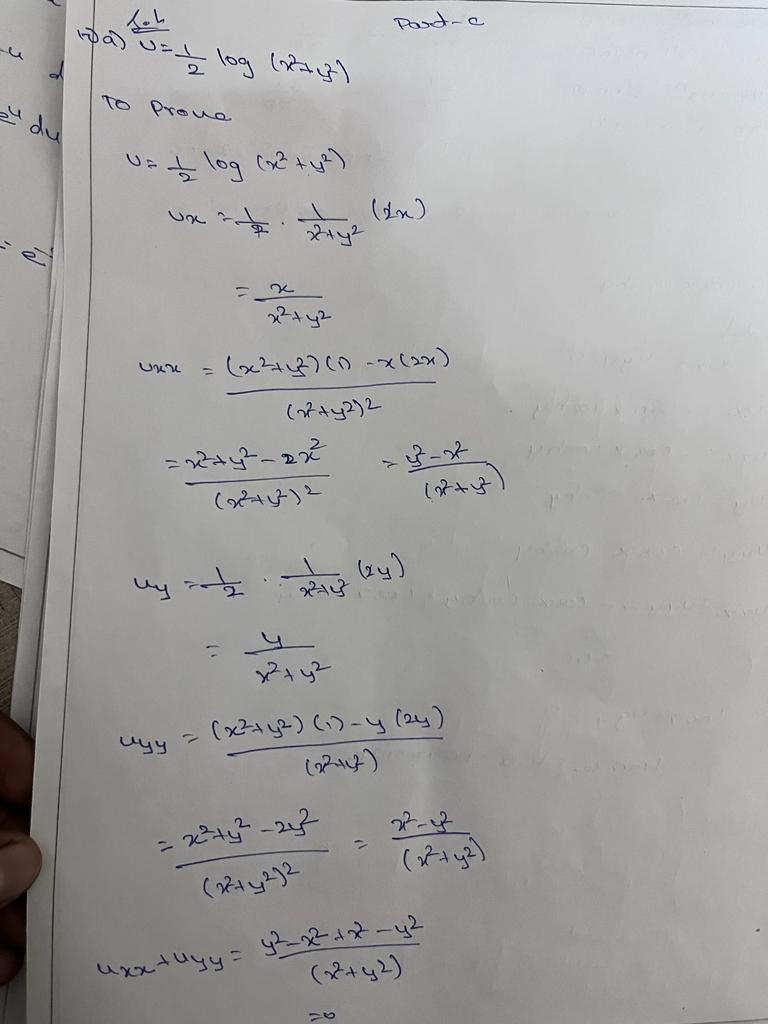 Sol
Part-c
a) u = 1/2 log (x²+y²)
To Prove
u = 1/2 log (x²+y²)
ux = 1/2 · 1/(x²+y²) (2x)
= x/(x²+y²)
uxx = ((x²+y²)(1) - x(2x))/(x²+y²)²
= (x²+y²-2x²)/(x²+y²)² = (y²-x²)/(x²+y²)
uy = 1/2 · 1/(x²+y²) (2y)
= y/(x²+y²)
uyy = ((x²+y²)(1) - y(2y))/(x²+y²)
= (x²+y²-2y²)/(x²+y²)² = (x²-y²)/(x²+y²)
uxx+uyy = (y²-x²+x²-y²)/(x²+y²)
=0
u
eu du
= e-